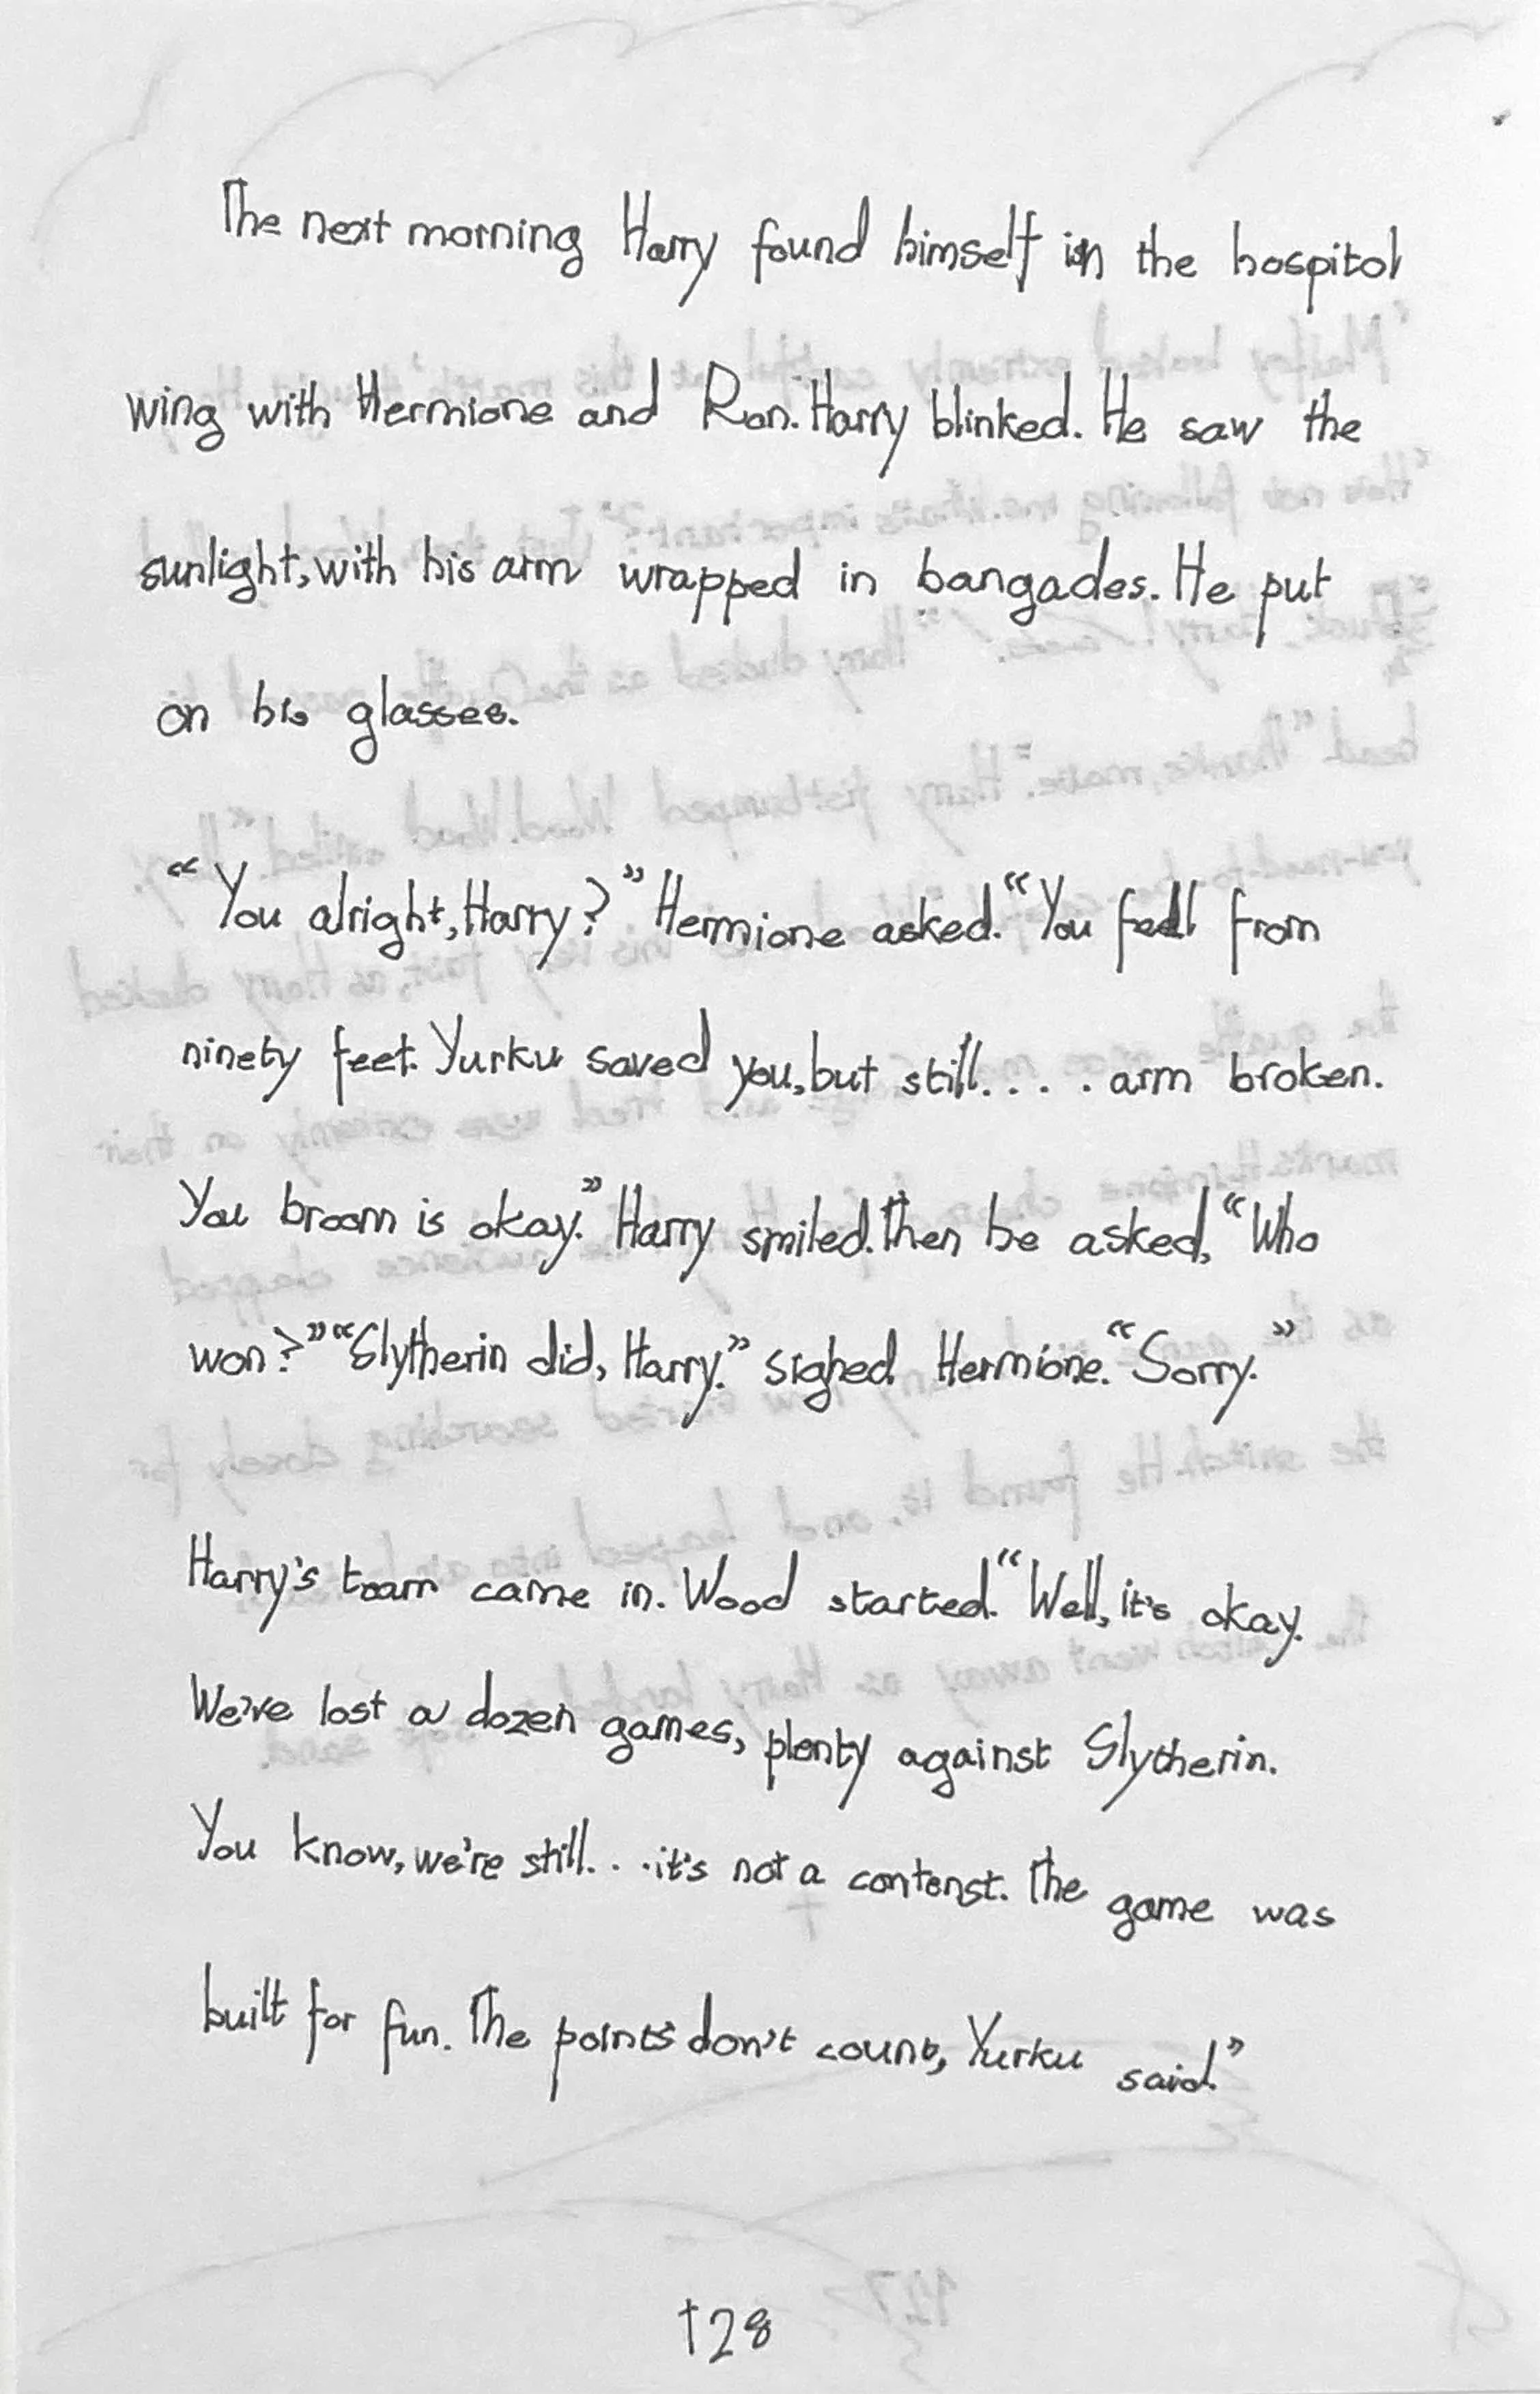 The next morning Harry found himself in the hospitol
wing with Hermione and Ron. Harry blinked. He saw the
sunlight, with his arm wrapped in bangades. He put
on his glasses.
“You alright, Harry?” Hermione asked. “You fell from
ninety feet. Yurku saved you, but still.... arm broken.
You broom is okay.” Harry smiled. Then he asked, “Who
won?” “Slytherin did, Harry.” sighed Hermione. “Sorry.”
Harry's team came in. Wood started. “Well, it's okay.
We've lost a dozen games, plenty against Slytherin.
You know, we're still... it's not a contenst. The game was
built for fun. The points don't count, Yurku said.”
128